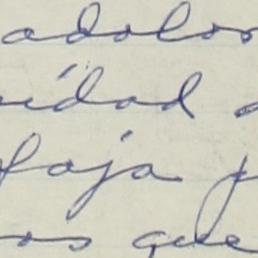 adolor
idad a
faja p
os que